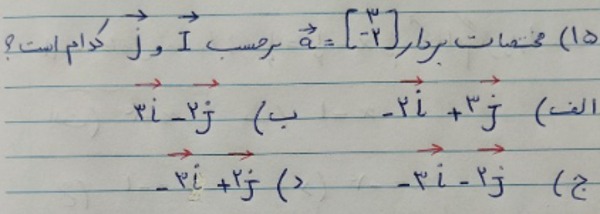 ۱۵) مختصات بردار a⃗ = [۳ -۲] برحسب I⃗ و j⃗ کدام است؟
الف) -۲i⃗ + ۳j⃗ ب) ۳i⃗ - ۲j⃗
ج) -۳i⃗ - ۲j⃗ د) -۳i⃗ + ۲j⃗